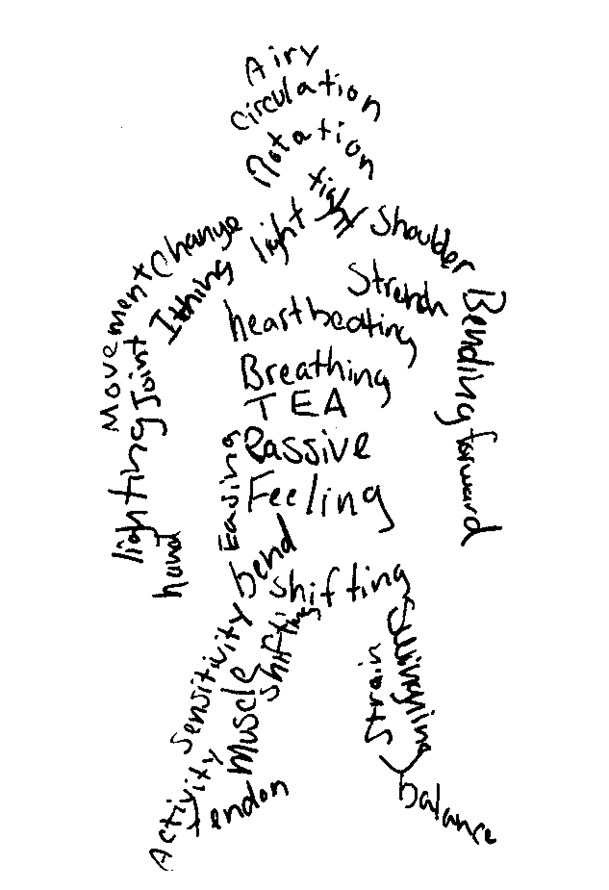 Airy
Circulation
Rotation
tight
light
Shoulder
Change
Movement
Ithing
Stretch
heartbeating
Bending forward
Joint
Breathing
TEA
Passive
lighting
Easing
Feeling
hand
bend
Shifting
Shifting
Sensitivity
Muscle
Strain
Activity
tendon
balance